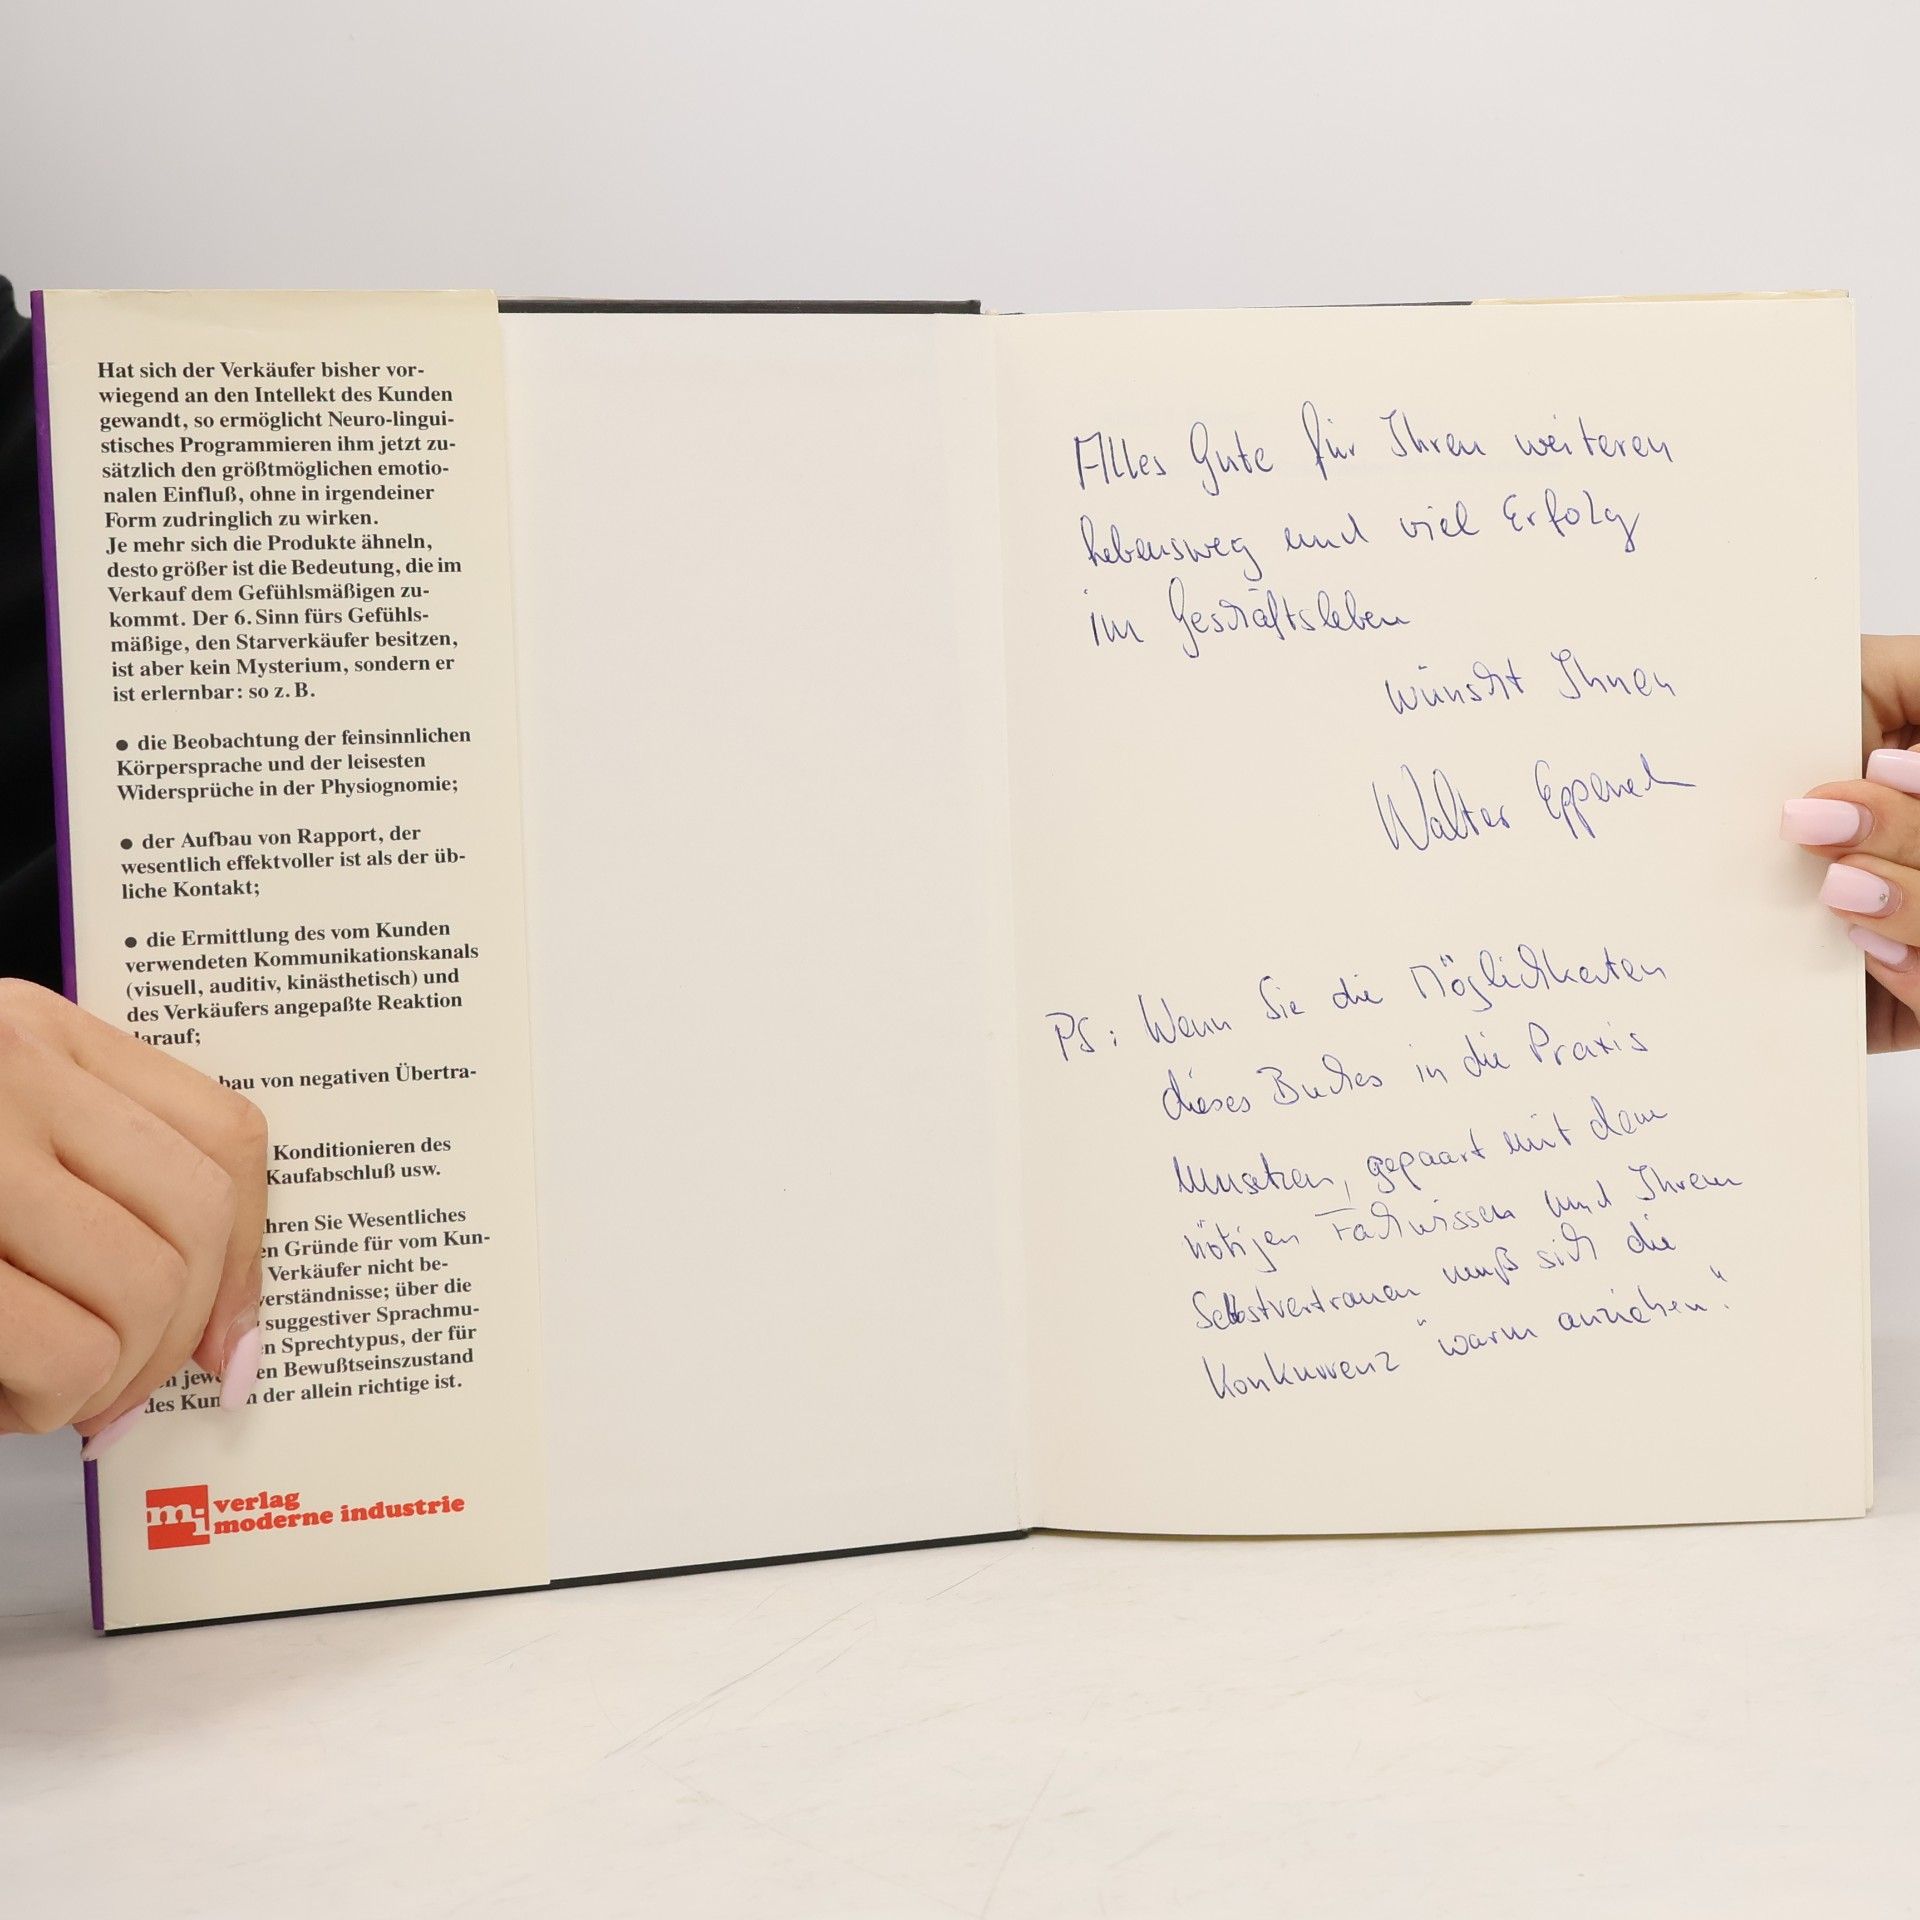 Hat sich der Verkäufer bisher vor-
wiegend an den Intellekt des Kunden
gewandt, so ermöglicht Neuro-lingui-
stisches Programmieren ihm jetzt zu-
sätzlich den größtmöglichen emotio-
nalen Einfluß, ohne in irgendeiner
Form zudringlich zu wirken.
Je mehr sich die Produkte ähneln,
desto größer ist die Bedeutung, die im
Verkauf dem Gefühlsmäßigen zu-
kommt. Der 6. Sinn fürs Gefühls-
mäßige, den Starverkäufer besitzen,
ist aber kein Mysterium, sondern er
ist erlernbar: so z. B.
● die Beobachtung der feinsinnlichen
Körpersprache und der leisesten
Widersprüche in der Physiognomie;
● der Aufbau von Rapport, der
wesentlich effektvoller ist als der üb-
liche Kontakt;
● die Ermittlung des vom Kunden
verwendeten Kommunikationskanals
(visuell, auditiv, kinästhetisch) und
des Verkäufers angepaßte Reaktion
darauf;
bau von negativen Übertra-
Konditionieren des
Kaufabschluß usw.
hren Sie Wesentliches
en Gründe für vom Kun-
Verkäufer nicht be-
verständnisse; über die
suggestiver Sprachmu-
n Sprechtypus, der für
en Bewußtseinszustand
des Kun n der allein richtige ist.
mi verlag
moderne industrie
Alles Gute für Ihren weiteren
Lebensweg und viel Erfolg
im Geschäftsleben
wünscht Ihnen
Walter
PS: Wenn Sie die Möglichkeiten
dieses Buches in die Praxis
umsetzen, gepaart mit dem
nötigen Fachwissen und Ihrem
Selbstvertrauen muß sich die
Konkurrenz "warm anziehen".